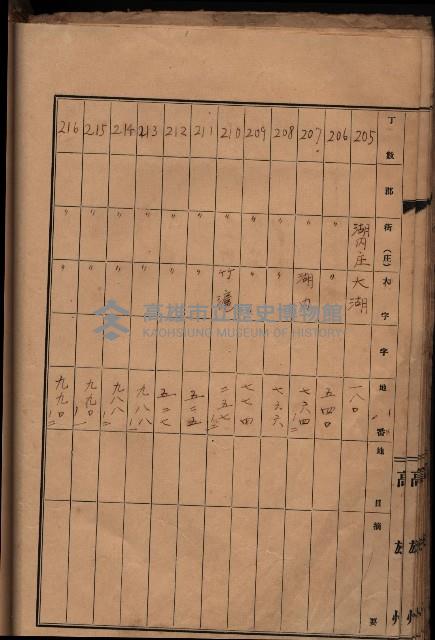 丁數 郡 街(庄) 大字 字 地番 地目 摘要
205 湖内庄 大湖 一八〇
206 〃 〃 五四〇
207 〃 湖内 七六四
208 〃 〃 七六六
209 〃 〃 七七四
210 〃 竹滬 二五七
211 〃 〃 五二五
212 〃 〃 五二七
213 〃 〃 九八八
214 〃 〃 九八八
215 〃 〃 九九〇
216 〃 〃 九九〇
高雄市立歷史博物館
KAOHSIUNG MUSEUM OF HISTORY
高雄州